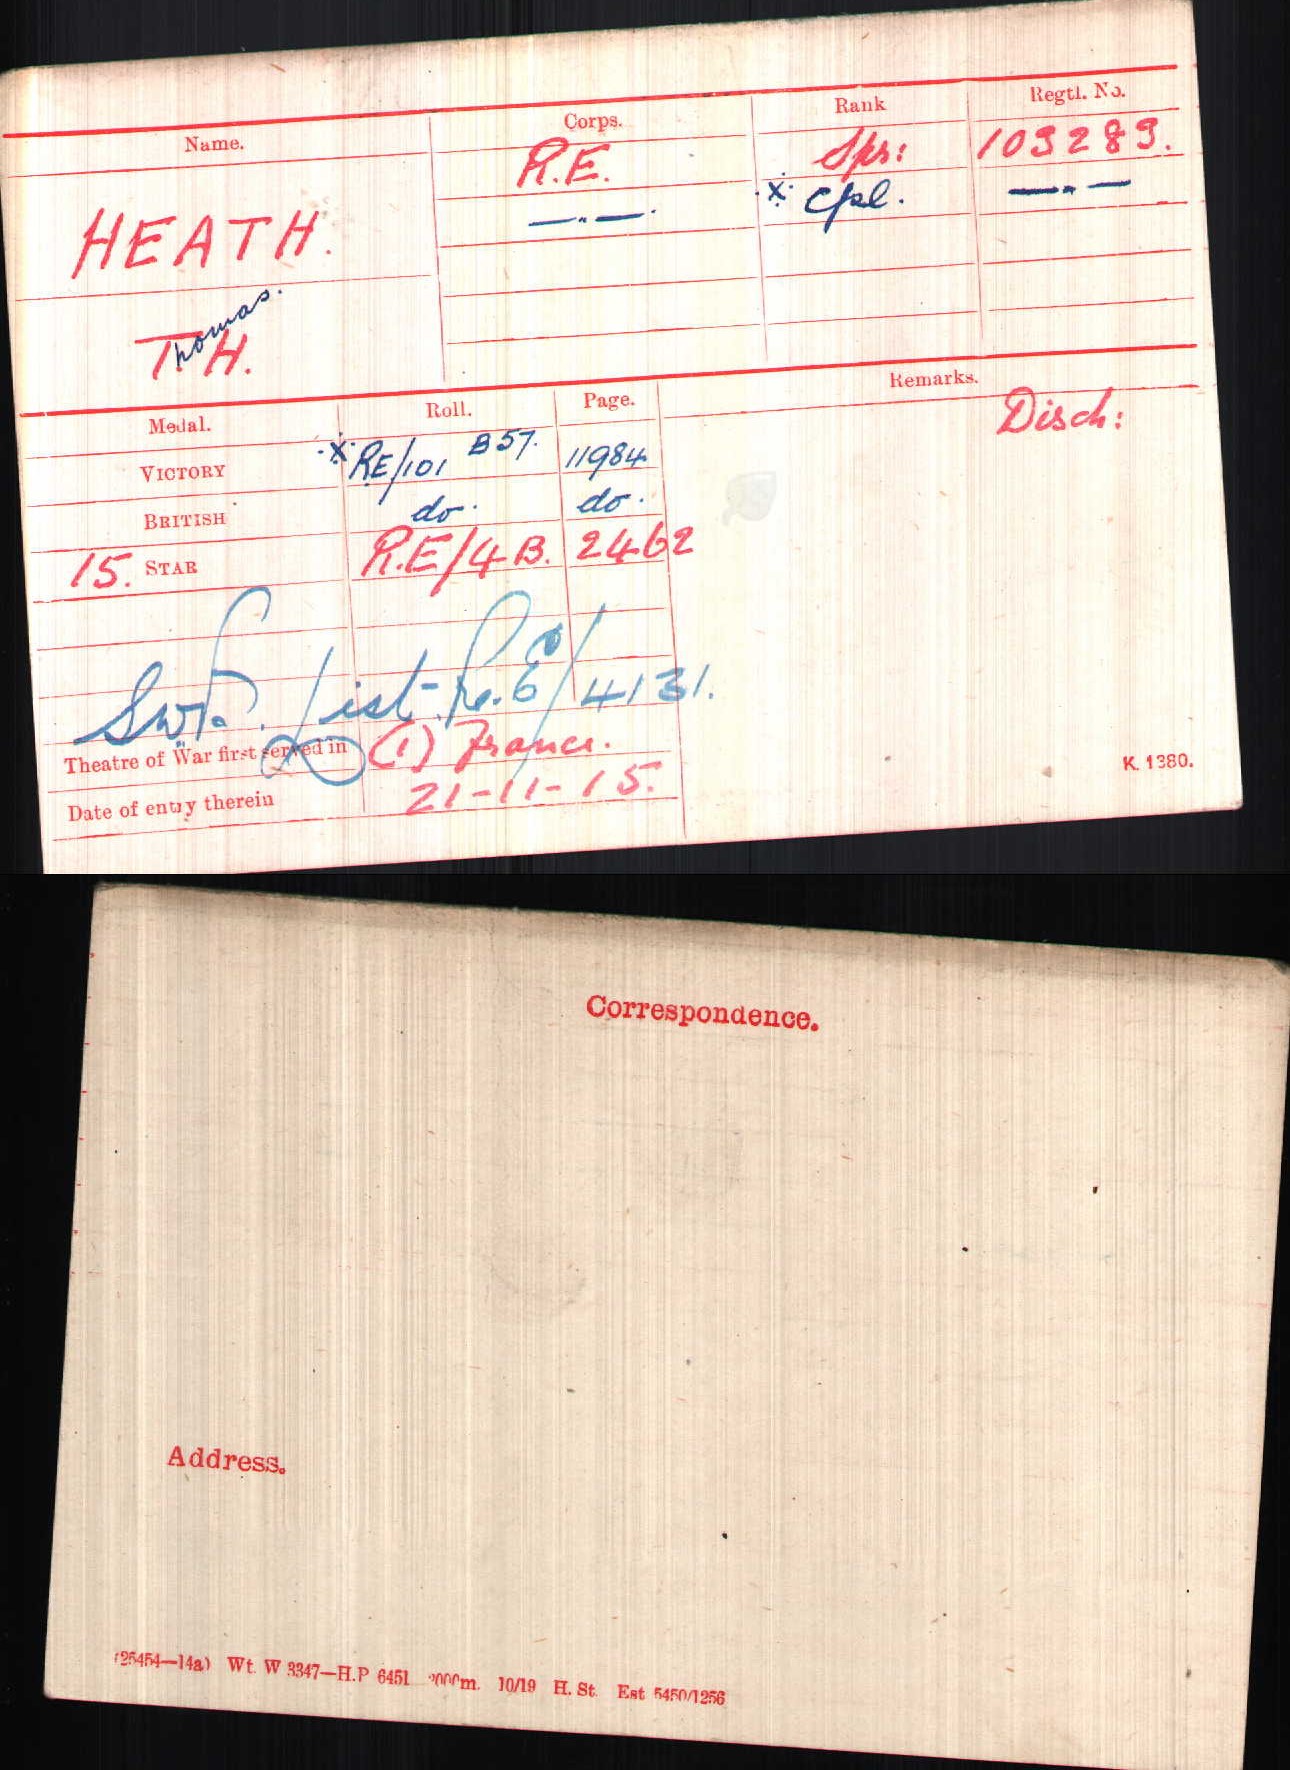 Name. Corps. Rank Regtl. No.
HEATH. R.E. Spr: 103283.
—„— . x Cpl. —„—
Thomas.
T. H.
Medal. Roll. Page. Remarks.
Disch:
VICTORY x RE/101 B57. 11984
BRITISH do. do.
15. STAR R.E/4 B. 2462
List R.E/4131.
Theatre of War first served in (1) France.
Date of entry therein 21-11-15.
K. 1380.
Correspondence.
Address.
(25454—14a) Wt. W 3347—H.P 6451 m. 10/19 H. St. Est 5450/1256